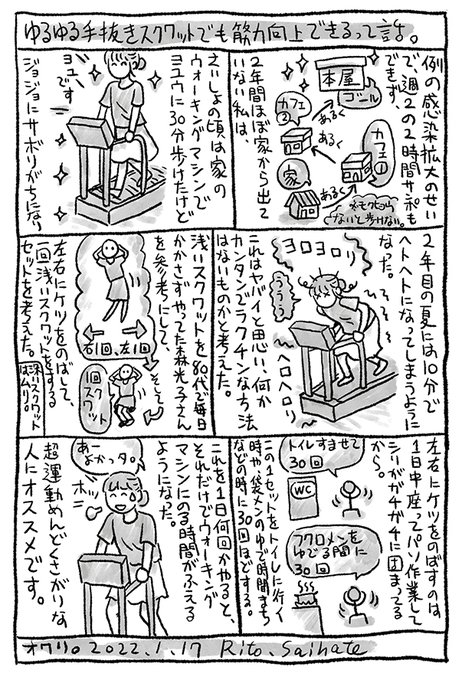 ゆるゆる手抜きスクワットでも筋力向上できるって話。
例の感染拡大のせい
で、週2の2時間サポも
できず、
本屋
ゴール
あるく
カフェ
②
あるく
カフェ
①
家
あるく
2年間ほぼ家から出て
いない私は、
さいしょの頃は家の
ウォーキングマシンで
ヨユウに30分歩けたけど
ジョジョにサボりがちになり
ヨユです
2年目の夏には10分で
ヘトヘトになってしまうように
なった。
ヨロヨロ
ううう
ヘロヘロリ
これはヤバイと思い、何か
カンタンでラクチンな方法
はないものかと考えた。
浅いスクワットを80代で毎日
かかさずやってた森光子さん
を参考にして、
右1回、左1回
そして
1回
スクワット
左右にケツをのばして、
一回浅いスクワットをする
セットを考えた。
深いスクワット
はムリ。
左右にケツをのばすのは
1日中座ってパソ作業して
シリがガチガチに固まってる
から。
トイレすませて
30回
WC
フクロメンを
ゆでる間に
30回
この1セットをトイレに行く
時や袋メンのゆで時間まち
などの時に30回ほどする。
これを1日何回かやると、
それだけでウォーキング
マシンにのる時間がふえる
ようになった。
あー
よかっタ。
ホッ
超運動めんどくさがりな
人にオススメです。
オワリ。2022.1.17 Rito.Saihate